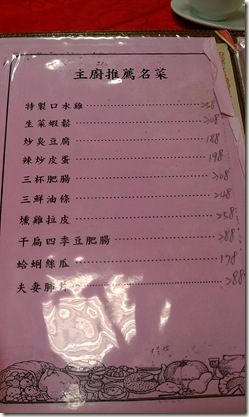 主廚推薦名菜
特製口水雞
生菜蝦鬆 208
炒臭豆腐 188
辣炒皮蛋 198
三杯肥腸 208
三鮮油條 248
燻雞拉皮 258
干扁四季豆肥腸 288
蛤蜊絲瓜 178
夫妻肺 288